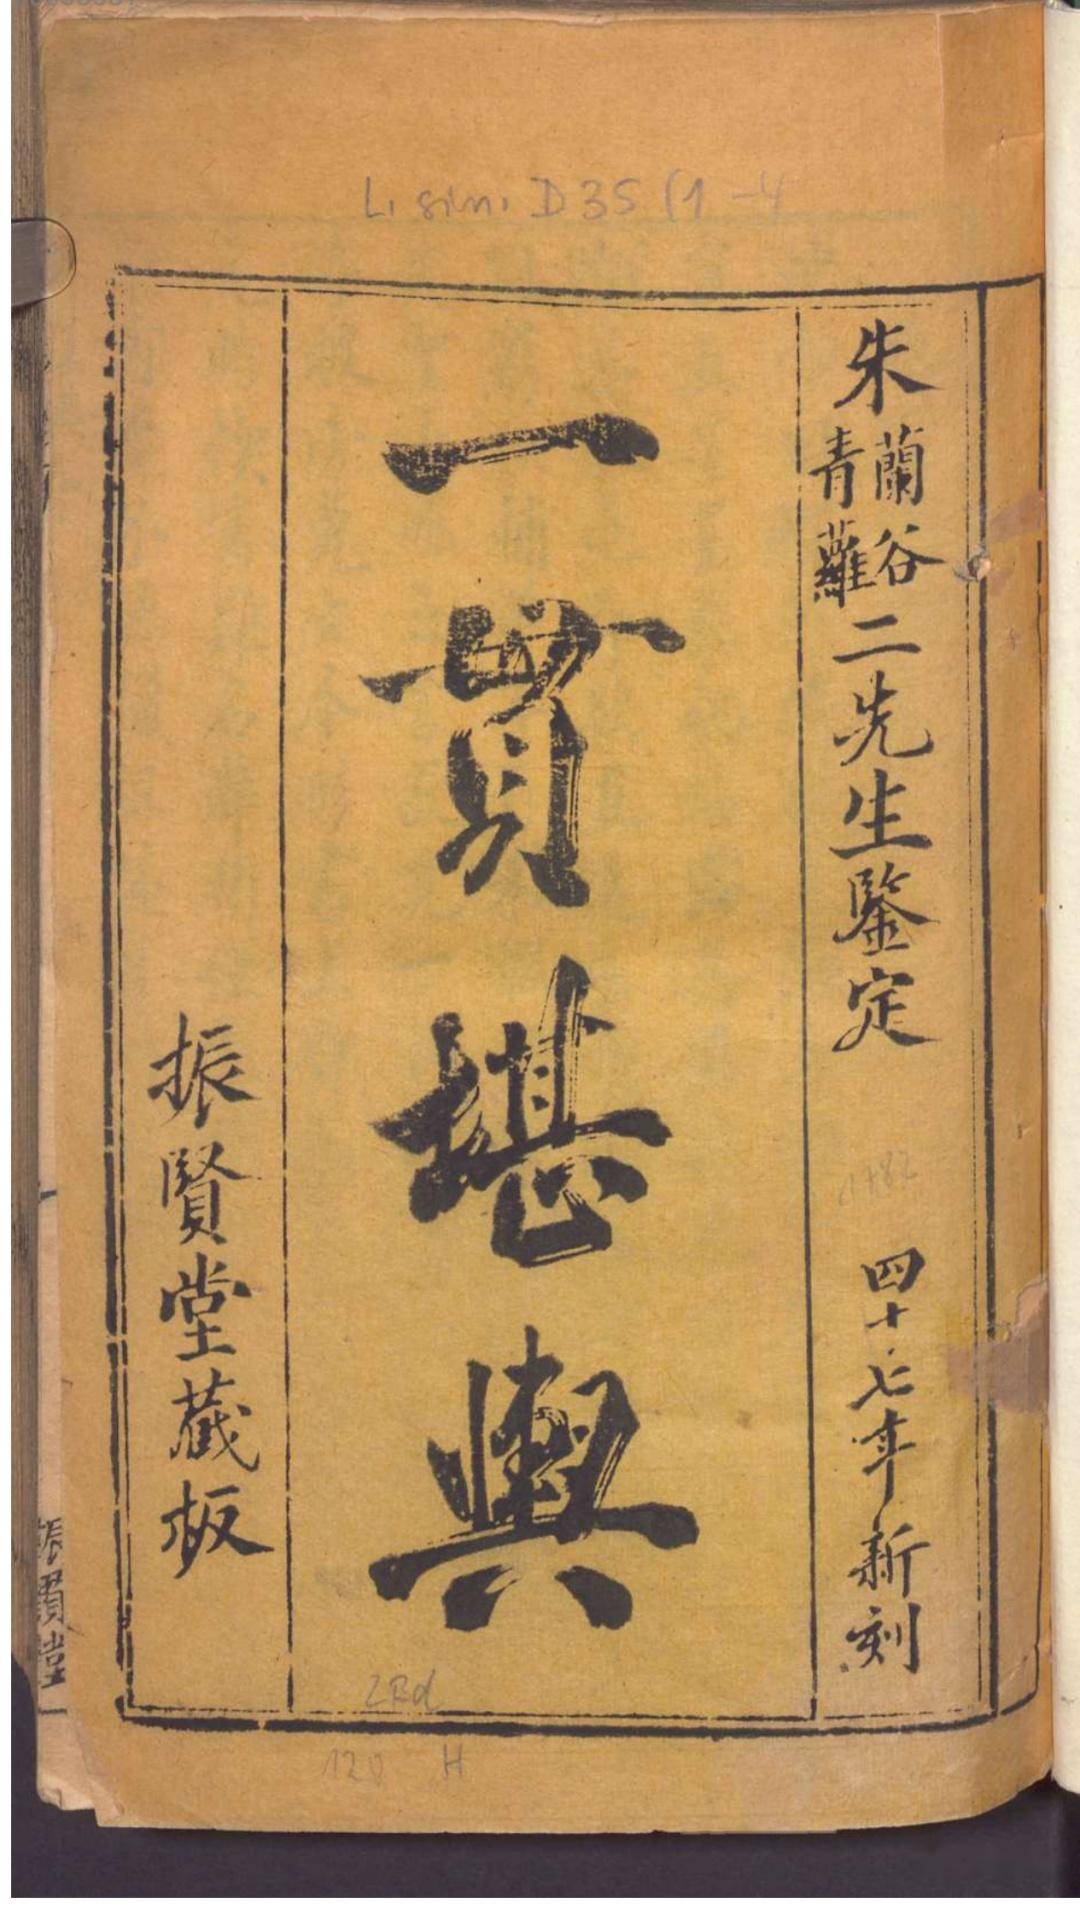 L. sin. D 35 (1-4
朱蘭谷青蘿二先生鑒定
四十七年新刻
一貫堪輿
振賢堂藏板
2Bd
120 H